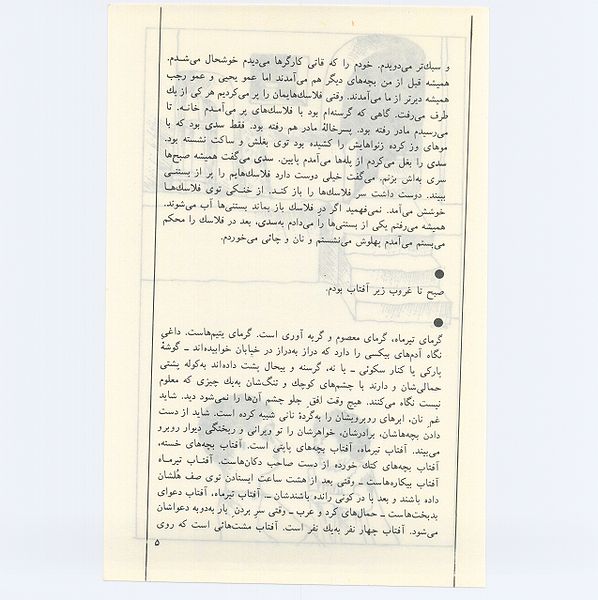 و سبك‌تر می‌دویدم. خودم را که قاتی کارگرها می‌دیدم خوشحال می‌شدم.
همیشه قبل از من بچه‌های دیگر هم می‌آمدند اما عمو یحیی و عمو رجب
همیشه دیرتر از ما می‌آمدند. وقتی فلاسك‌هایمان را پر می‌کردیم هر کی از یك
طرف می‌رفت. گاهی که گرسنه‌ام بود با فلاسك‌های پر می‌آمدم خانه. تا
می‌رسیدم مادر رفته بود. پسرخالهٔ مادر هم رفته بود. فقط سدی بود که با
موهای وز کرده زنواهایش را کشیده بود توی بغلش و ساکت نشسته بود.
سدی را بغل می‌کردم از پله‌ها می‌آمدم پایین. سدی می‌گفت همیشه صبح‌ها
سری به‌اش بزنم. می‌گفت خیلی دوست دارد فلاسك‌هایم را پر از بستنی
ببیند. دوست داشت سر فلاسك‌ها را باز کند. از خنکی توی فلاسك‌ها
خوشش می‌آمد. نمی‌فهمید اگر در فلاسك باز بماند بستنی‌ها آب می‌شوند.
همیشه می‌رفتم یکی از بستنی‌ها را می‌دادم به‌سدی، بعد در فلاسك را محکم
می‌بستم می‌آمدم پهلوش می‌نشستم و نان و چائی می‌خوردم.
●
صبح تا غروب زیر آفتاب بودم.
●
گرمای تیرماه، گرمای معصوم و گریه آوری است. گرمای یتیم‌هاست. داغی
نگاه آدم‌های بیکسی را دارد که دراز به‌دراز در خیابان خوابیده‌اند ــ گوشهٔ
پارکی یا کنار سکوئی ــ یا نه، گرسنه و بیحال پشت داده‌اند به‌کوله پشتی
حمالی‌شان و دارند با چشم‌های کوچك و تنگ‌شان به‌یك چیزی که معلوم
نیست نگاه می‌کنند. هیچ وقت افق جلو چشم آن‌ها را نمی‌شود دید. شاید
غم نان، ابرهای روبرویشان را به‌گردهٔ نانی شبیه کرده است. شاید از دست
دادن بچه‌هاشان، برادرشان، خواهرشان را تو ویرانی و ریختگی دیوار روبرو
می‌بیند. آفتاب تیرماه، آفتاب بچه‌های پاپتی است. آفتاب بچه‌های خسته،
آفتاب بچه‌های کتك خورده از دست صاحب دکان‌هاست. آفتاب تیرماه
آفتاب بیکاره‌هاست ــ وقتی بعد از هشت ساعت ایستادن توی صف هُلشان
داده باشند و بعد با در کونی رانده باشندشان ــ. آفتاب تیرماه، آفتاب دعوای
بدبخت‌هاست ــ حمال‌های کرد و عرب ــ وقتی سر بردن بار به‌دوبه دعواشان
می‌شود. آفتاب چهار نفر به‌یك نفر است. آفتاب مشت‌هائی است که روی
۵